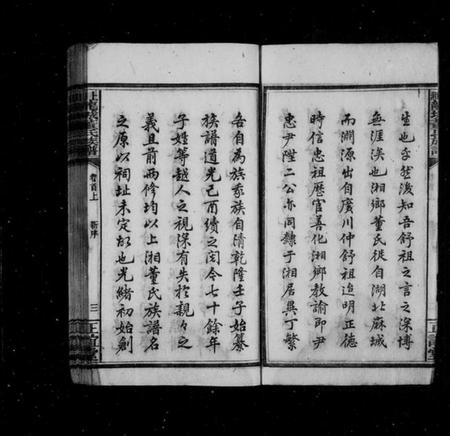 生也子楚後知吾舒祖之言之深博
無涯涘也湘鄉董氏從自湖北麻城
而淵源出自廣川仲舒祖追明正德
時信忠祖歷官善化湘鄉教諭即尹
忠尹陞二公亦同隸于湘居吳丁繁
吾自為族家族自清乾隆壬子始纂
族譜道光己酉續之閱今七十餘年
子姓等越人之視深有失於親々之
義且前兩修均以上湘董氏族譜名
之原以祠址未定故也光緒初始創
卷首上
新序
三